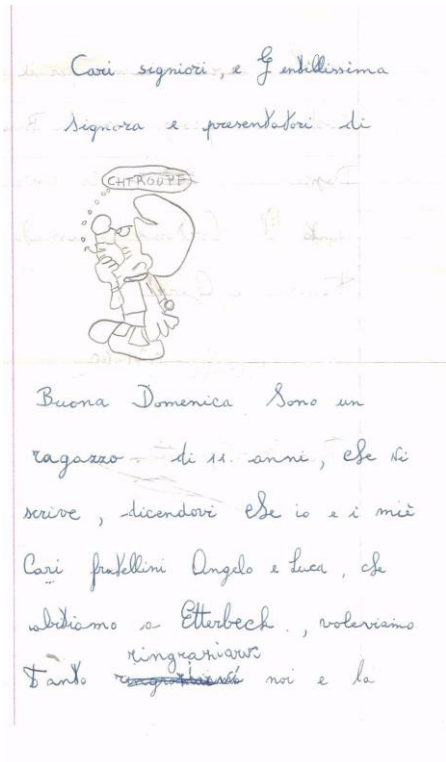 Cari signiori, e Gentillissima
Signora e presentatori di
CHTROUPF
Buona Domenica Sono un
ragazzo di 11. anni, che vi
scrive, dicendovi che io e i miè
Cari fratellini Angelo e Luca, che
abitiamo a Etterbeck., voleviamo
ringraniarvi
Tanto noi e la